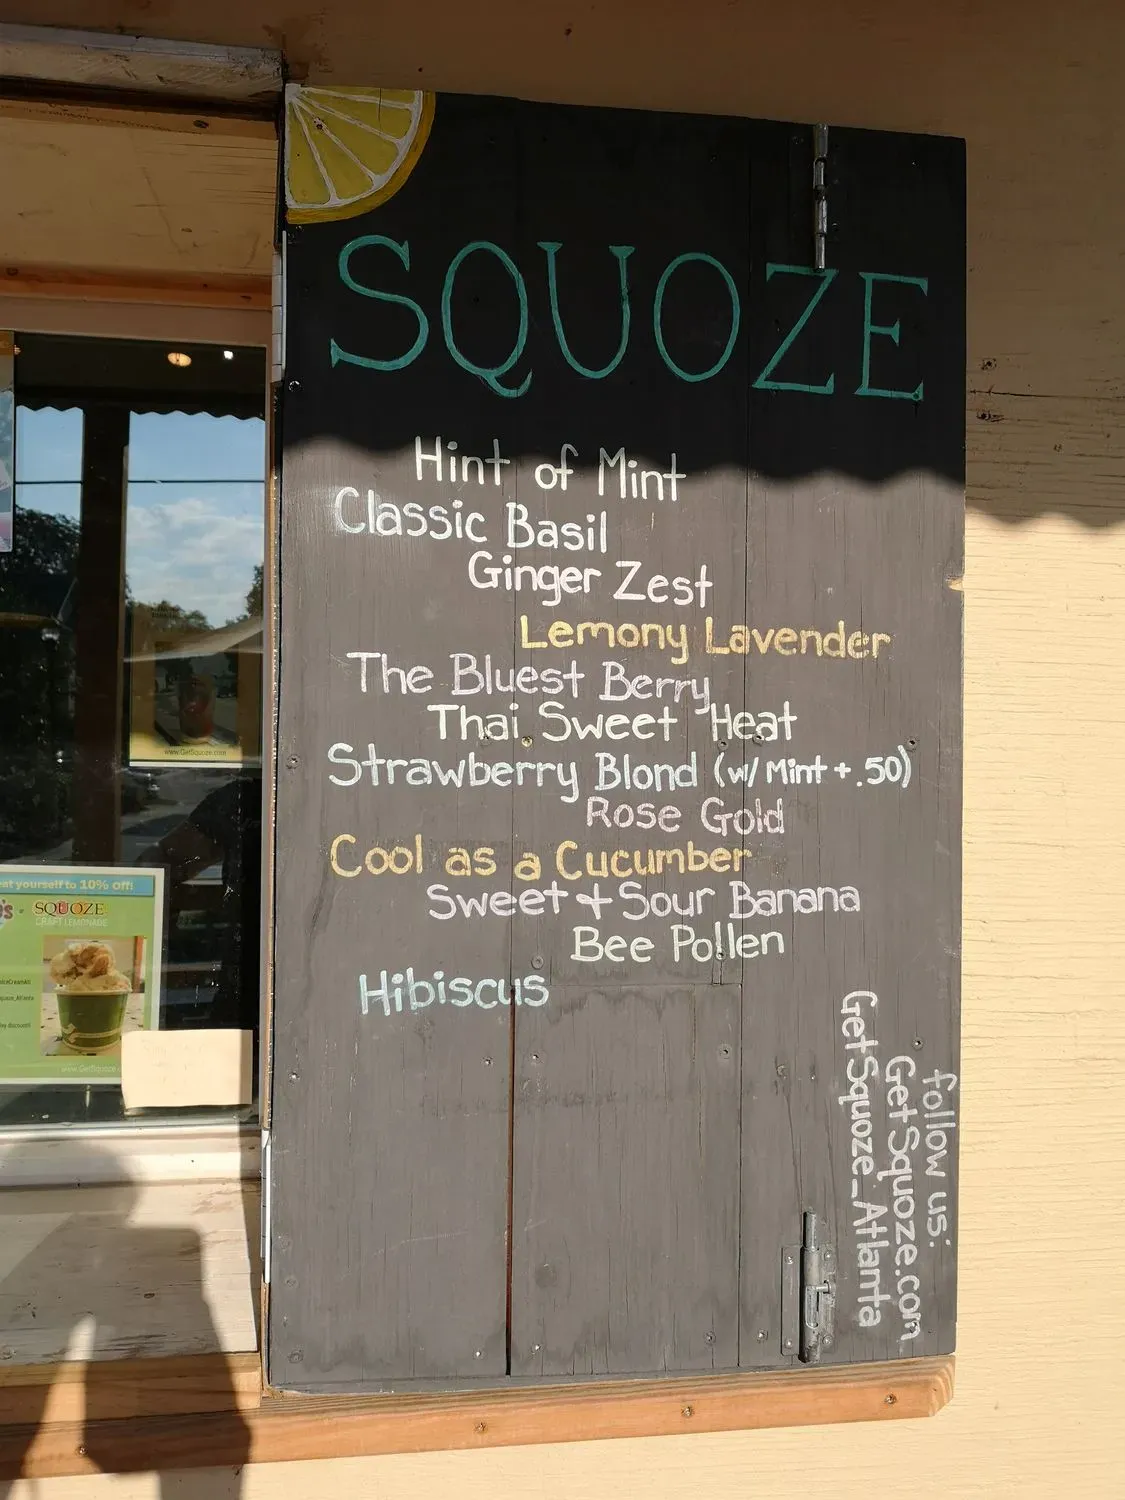 SQUOZE
Hint of Mint
Classic Basil
Ginger Zest
Lemony Lavender
The Bluest Berry
Thai Sweet Heat
Strawberry Blond (w/ Mint + .50)
Rose Gold
Cool as a Cucumber
Sweet + Sour Banana
Bee Pollen
Hibiscus
follow us:
GetSquoze.com
GetSquoze_Atlanta
www.GetSquoze.com
eat yourself to 10% off!
SQUOZE
CRAFT LEMONADE